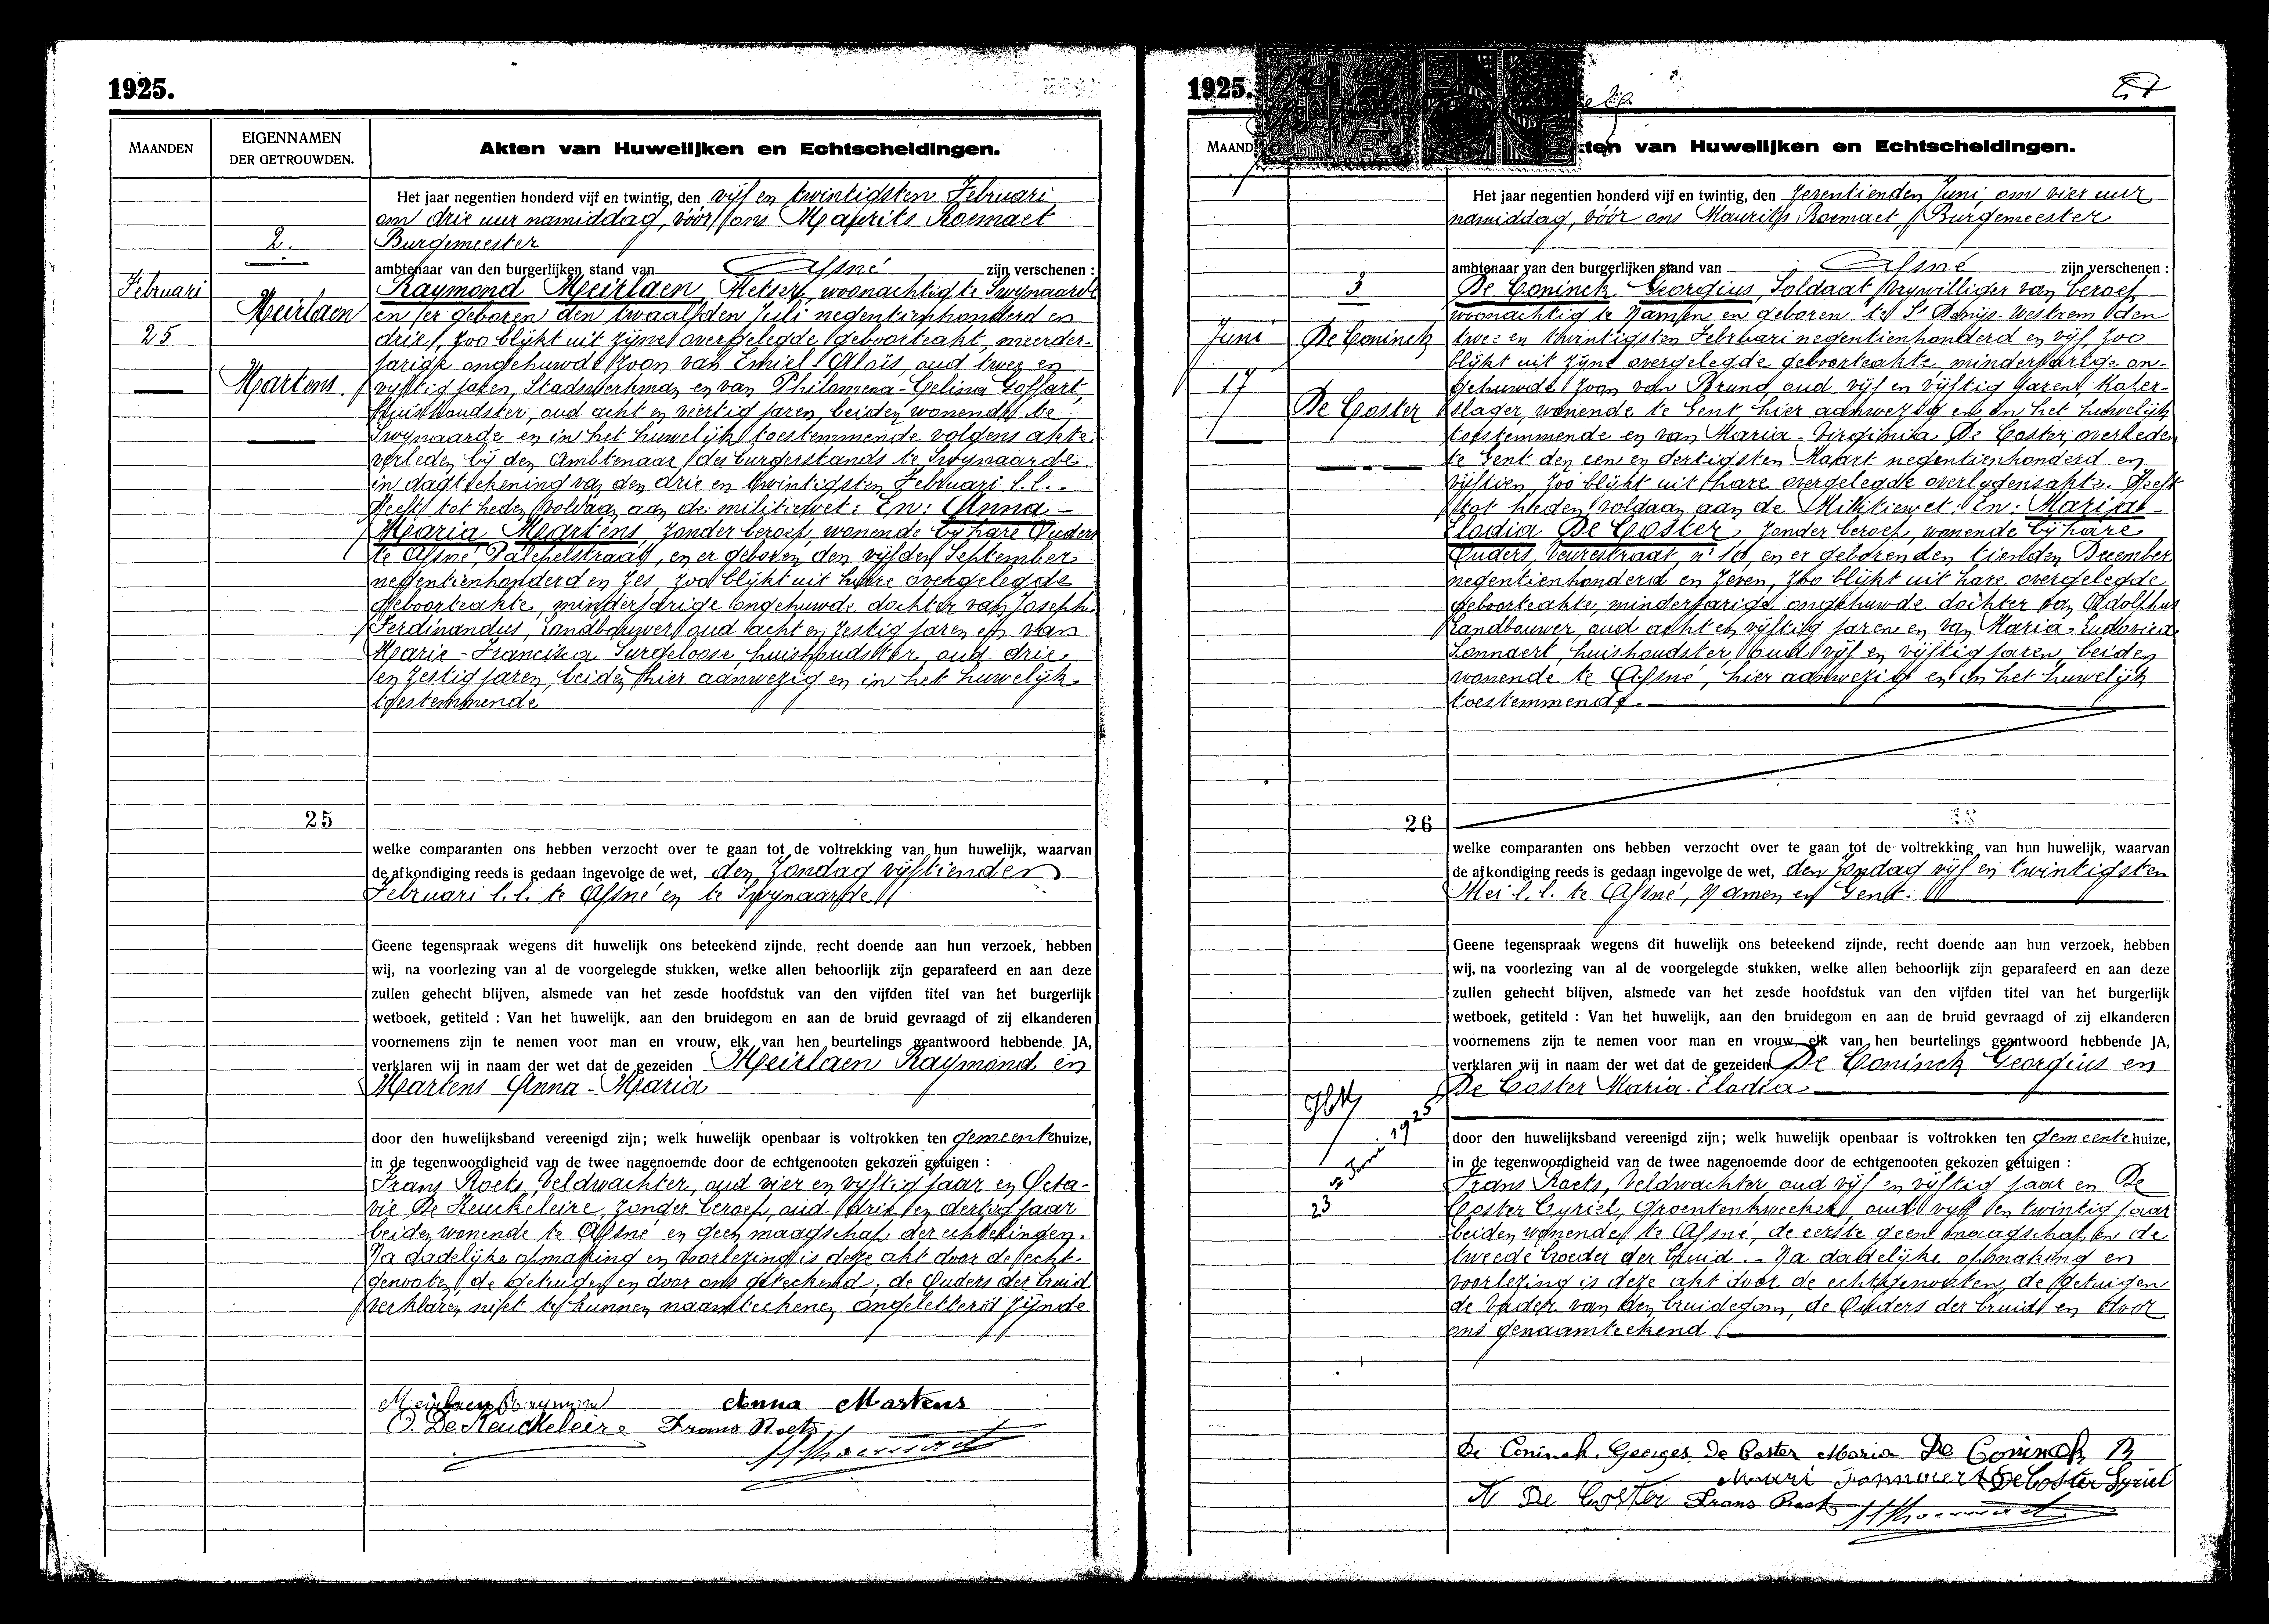 1925.
MAANDEN
EIGENNAMEN
DER GETROUWDEN.
Akten van Huwelijken en Echtscheidingen.
2.
Februari
25
Meirlaen
Martens
Het jaar negentien honderd vijf en twintig, den vijf en twintigsten Februari
om drie uur namiddag, vóór ons Maurits Roemaet
Burgemeester
ambtenaar van den burgerlijken stand van Afsné zijn verschenen :
Raymond Meirlaen Metser, woonachtig te Swynaarde
en er geboren den twaalfden Juli negentienhonderd en
drie, zoo blijkt uit zijne overgelegde geboorteakt, meerder-
jarige ongehuwde zoon van Emiel-Aloïs, oud twee en
vijftig jaren, Stadswerkman en van Philomena-Celina Goffart,
huishoudster, oud acht en veertig jaren, beiden wonende te
Swynaarde en in het huwelijk toestemmende volgens akte
verleden bij den Ambtenaar des burgerstands te Swynaarde
in dagteekening van den drie en twintigsten Februari l.l.
Heeft tot heden voldaan aan de militiewet: En: Anna-
Maria Martens zonder beroep, wonende bij hare Ouders
te Afsné, en er geboren den vijfden September
negentienhonderd en zes, zoo blijkt uit hare overgelegde
geboorteakte, minderjarige ongehuwde dochter van Joseph
Ferdinandus, Landbouwer oud acht en zestig jaren en van
Marie-Francisca Surgeloose, huishoudster, oud drie
en zestig jaren, beiden hier aanwezig en in het huwelijk
toestemmende
25
welke comparanten ons hebben verzocht over te gaan tot de voltrekking van hun huwelijk, waarvan
de afkondiging reeds is gedaan ingevolge de wet, den Zondag vijftienden
Februari l.l. te Afsné en te Swynaarde
Geene tegenspraak wegens dit huwelijk ons beteekend zijnde, recht doende aan hun verzoek, hebben
wij, na voorlezing van al de voorgelegde stukken, welke allen behoorlijk zijn geparafeerd en aan deze
zullen gehecht blijven, alsmede van het zesde hoofdstuk van den vijfden titel van het burgerlijk
wetboek, getiteld : Van het huwelijk, aan den bruidegom en aan de bruid gevraagd of zij elkanderen
voornemens zijn te nemen voor man en vrouw, elk van hen beurtelings geantwoord hebbende JA,
verklaren wij in naam der wet dat de gezeiden Meirlaen Raymond en
Martens Anna-Maria
door den huwelijksband vereenigd zijn; welk huwelijk openbaar is voltrokken ten gemeentehuize,
in de tegenwoordigheid van de twee nagenoemde door de echtgenooten gekozen getuigen :
Frans Roets, Veldwachter, oud vier en vijftig jaar en Octa-
vie De Keuckeleire, zonder beroep, oud drie en dertig jaar
beiden wonende te Afsné en geen maagschap der echtelingen.
Na dadelijke opmaking en voorlezing is deze akt door de echt-
genooten, de getuigen en door ons geteekend; de Ouders der bruid
verklaren niet te kunnen naamteekenen ongeletterd zijnde
Meirlaen Raymond Anna Martens
O. De Keuckeleire Frans Roets
1925.
Akten van Huwelijken en Echtscheidingen.
3
Juni
17
De Coninck
De Coster
Het jaar negentien honderd vijf en twintig, den Zeventienden Juni, om vier uur
namiddag, vóór ons Maurits Roemaet, Burgemeester
ambtenaar van den burgerlijken stand van Afsné zijn verschenen :
De Coninck Georgius, Soldaat Vrywilliger van beroep
woonachtig te Namen en geboren te St Denijs-Westrem den
twee en twintigsten Februari negentienhonderd en vijf, zoo
blijkt uit zijne overgelegde geboorteakte, minderjarige on-
gehuwde zoon van Bruno, oud vijf en vijftig jaren, Koper-
slager, wonende te Gent, hier aanwezig en in het huwelijk
toestemmende en van Maria-Virginia De Coster, overleden
te Gent den een en dertigsten Maart negentienhonderd en
vijftien, zoo blijkt uit hare overgelegde overlydensakte. Heeft
tot heden voldaan aan de Militiewet. En: Maria-
Elodia De Coster, zonder beroep, wonende bij hare
Ouders, Veurestraat, n° 10, en er geboren den tienden December
negentienhonderd en zeven, zoo blijkt uit hare overgelegde
geboorteakte, minderjarige ongehuwde dochter van Adolphus
Landbouwer, oud acht en vijftig jaren en van Maria-Ludovica
Lonnaert, huishoudster, oud vijf en vijftig jaren, beiden
wonende te Afsné, hier aanwezig en in het huwelijk
toestemmende.
26
welke comparanten ons hebben verzocht over te gaan tot de voltrekking van hun huwelijk, waarvan
de afkondiging reeds is gedaan ingevolge de wet, den Zondag vijf en twintigsten
Mei l.l. te Afsné, Namen en Gent.
Geene tegenspraak wegens dit huwelijk ons beteekend zijnde, recht doende aan hun verzoek, hebben
wij, na voorlezing van al de voorgelegde stukken, welke allen behoorlijk zijn geparafeerd en aan deze
zullen gehecht blijven, alsmede van het zesde hoofdstuk van den vijfden titel van het burgerlijk
wetboek, getiteld : Van het huwelijk, aan den bruidegom en aan de bruid gevraagd of zij elkanderen
voornemens zijn te nemen voor man en vrouw, elk van hen beurtelings geantwoord hebbende JA,
verklaren wij in naam der wet dat de gezeiden De Coninck Georgius en
De Coster Maria-Elodia
door den huwelijksband vereenigd zijn; welk huwelijk openbaar is voltrokken ten gemeentehuize,
in de tegenwoordigheid van de twee nagenoemde door de echtgenooten gekozen getuigen :
Frans Roets, Veldwachter, oud vijf en vijftig jaar en De
Coster Cyriel, Groentenkweeker, oud vijf en twintig jaar
beiden wonende te Afsné, de eerste geen maagschap en de
tweede broeder der bruid. - Na dadelijke opmaking en
voorlezing is deze akt door de echtgenooten, de getuigen
de Vader van den bruidegom, de Ouders der bruid en door
ons genaamteekend
23 Juni 1925
De Coninck Georges De Coster Maria De Coninck B
De Coster Cyriel
De Coster Frans Roets